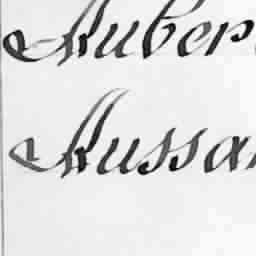 Auber
Aussa